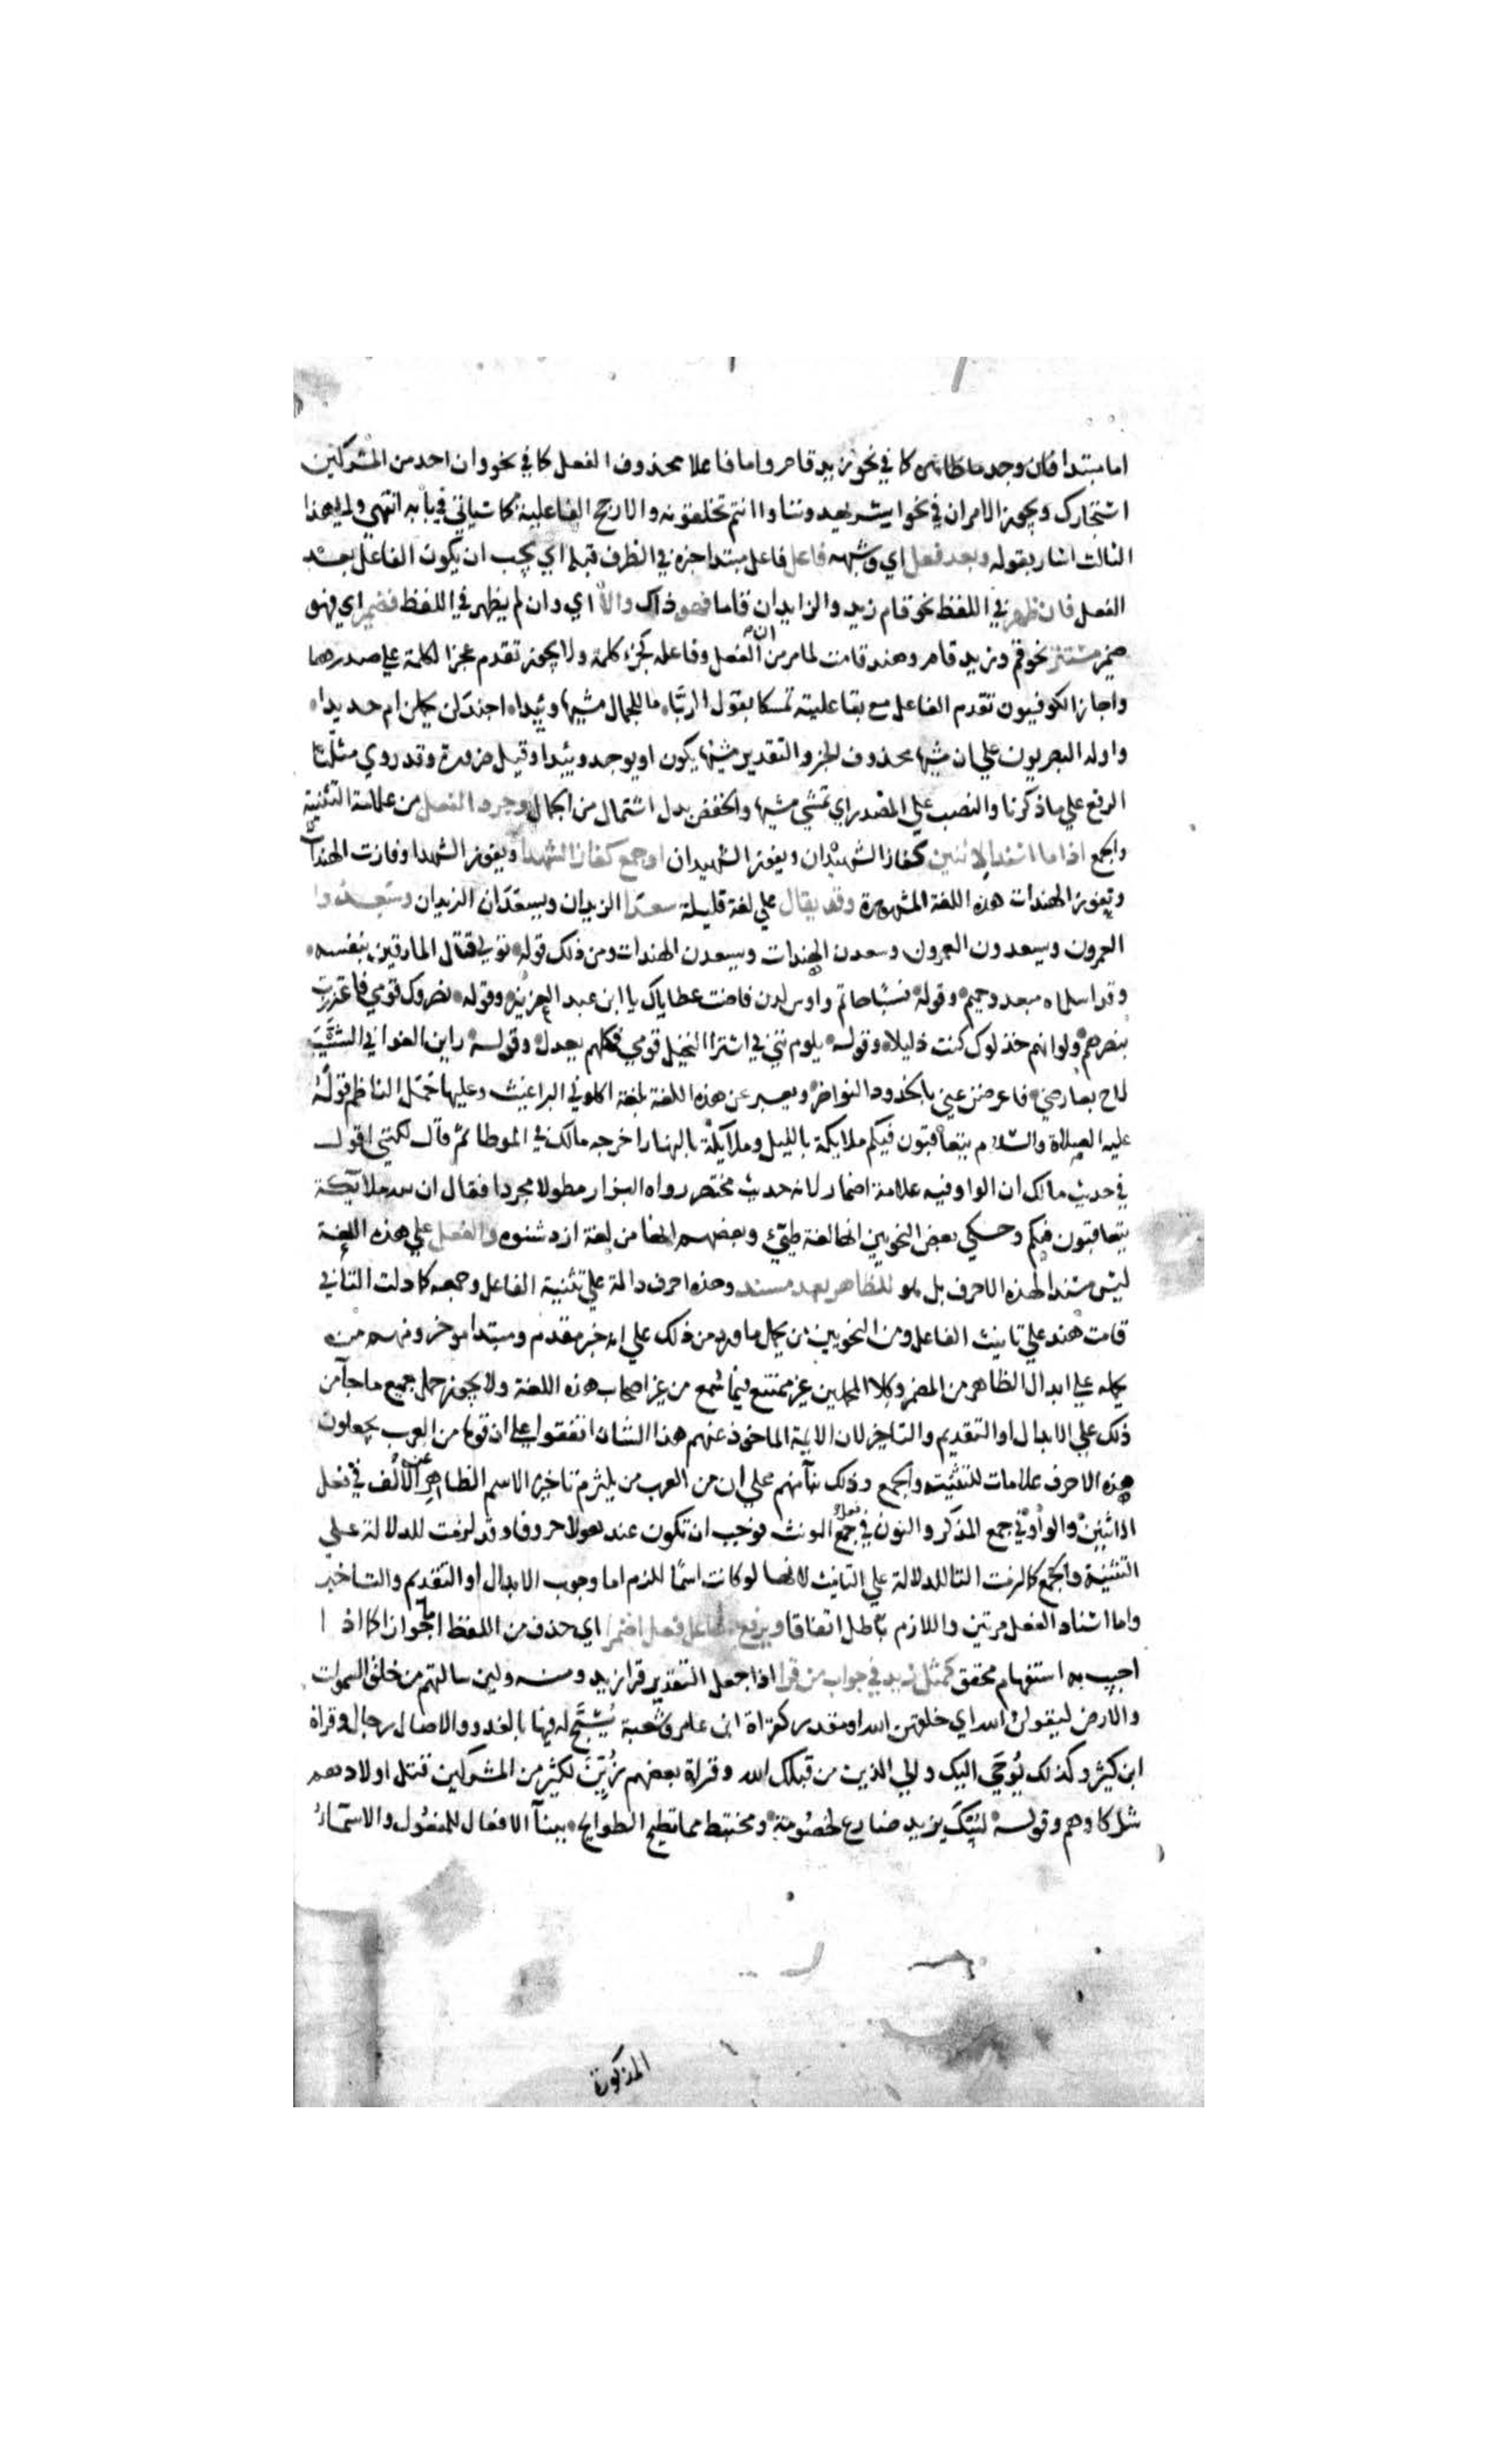 اما مبتدا فان وجد ما ظاهره كما في نحو زيد قام واما فاعلا محذوف الفعل كما في نحو وان احد من المشركين
استجارك ويجوز الامران في نحو ابشر يهدوننا واانتم تخلقونه والارجح الفاعلية كما سياتي في بابه انتهي والي هذا
الثالث اشار بقوله وبعد فعل اي وشبهه فاعل فاعل مبتدا خبره في الظرف قبله اي يجب ان يكون الفاعل بعد
الفعل فان ظهر في اللفظ نحو قام زيد والزايدان قاما فهو ذاك والا اي وان لم يظهر في اللفظ فضمير اي فهو
ضمير مستتر نحو قم وزيد قام وهند قامت لما مر من ان الفعل وفاعله كجزء كلمة ولا يجوز تقدم عجز الكلمة علي صدرها
واجاز الكوفيون تقدم الفاعل مع بقا عليته تمسكا بقول الزبّاء ما للجمال مشيها وئيدا اجندلن يحملن ام حديدا
واوله البصريون علي ان مشيها محذوف الخبر والتقدير مشيها يكون او يوجد وئيدا وقيل ضرورة وقد روي مثلثا
الرفع علي ما ذكرنا والنصب علي المصدر اي تمشي مشيها والخفض بدل اشتمال من الجمال وجرد الفعل من علامة التثنية
والجمع اذا ما اسندا لاثنين كفاز الشهيدان ويفوز الشهيدان او جمع كفاز الشهدا ويفوز الشهدا وفازت الهندات
وتفوز الهندات هذه اللغة المشهورة وقد يقال علي لغة قليلة سعدا الزيدان ويسعدان الزيدان وسعدوا
العمرون ويسعدون العمرون وسعدن الهندات ويسعدن الهندات ومن ذلك قوله تولي قتال المارقين بنفسه
وقد اسلماه مبعد وحميم وقوله نسيا حاتم واوس لدن فاضت عطاياك يا ابن عبد العزيز وقوله نصروك قومي فاعتززت
بنصرهم ولو انهم خذلوك كنت ذليلا وقوله يلومونني في اشترا النخيل قومي فكلهم يعدل وقوله راين الغواني الشيب
لاح بعارضي فاعرضن عني بالخدود النواضر ويعبر عن هذه اللغة بلغة اكلوني البراغيث وعليها حمل الناظم قوله
عليه الصلاة والسلام يتعاقبون فيكم ملايكة بالليل وملايكة بالنهار اخرجه مالك في الموطا ثم قال لكنني اقول
في حديث مالك ان الواو فيه علامة اضمار لانه حديث مختصر رواه البزار مطولا مجردا فقال ان لله ملايكة
يتعاقبون فيكم وحكي بعض النحويين انها لغة طيئ وبعضهم انها من لغة ازد شنوه والفعل علي هذه اللغة
ليس مسندا لهذه الاحرف بل هو للظاهر بعد مسند وهذه احرف دالة علي تثنية الفاعل وجمعه كما دلت التا في
قامت هند علي تانيث الفاعل ومن النحويين من يحمل ما ورد من ذلك علي انه خبر مقدم ومبتدا موخر ومنهم من
يحمله علي ابدال الظاهر من المضمر وكلا المحملين غير ممتنع فيما سمع من غير اصحاب هذه اللغة ولا يجوز حمل جميع ما جآ من
ذلك علي الابدال او التقديم والتاخير لان الايمة الماخوذ عنهم هذا الشان اتفقوا علي ان قوما من العرب يجعلون
هذه الاحرف علامات للتثنية والجمع وذلك بنآ منهم علي ان من العرب من يلتزم تاخير الاسم الظاهر عن الالف في فعل
الاثنين والواو في جمع المذكر والنون في فعل جمع المونث فوجب ان تكون عند هولا حروفا وقد لزمت للدلالة علي
التثنية والجمع كما لزمت التا للدلالة علي التانيث لانها لو كانت اسما للزم اما وجوب الابدال او التقديم والتاخير
واما اسناد الفعل مرتين واللازم باطل اتفاقا ويرفع الفاعل فعل اضمرا اي حذف من اللفظ اما جوازا كما اذا
اجيب به استفهام محقق كمثل زيد في جواب من قرا اذا جعل التقدير قرا زيد ومنه ولين سالتهم من خلق السموات
والارض ليقولن الله اي خلقهن الله او مقدر كقراة ابن عامر وشعبة يُسَبَّح له فيها بالغدو والاصال رجال وقراة
ابن كثير وكذلك يُوحَي اليك والي الذين من قبلك الله وقراة بعضهم زُيِّنَ لكثير من المشركين قتل اولادهم
شركاوهم وقوله ليُبْكَ يزيد ضارع لخصومة ومختبط مما تطيح الطوايح ببنآ الافعال للمفعول والاسماء
المذكورة